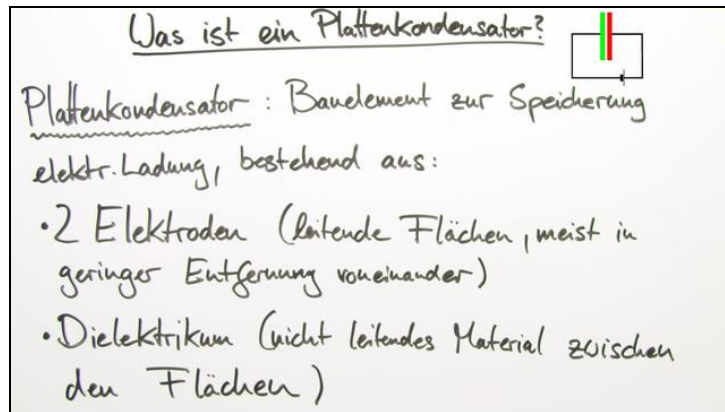 Was ist ein Plattenkondensator?
Plattenkondensator : Bauelement zur Speicherung
elektr. Ladung, bestehend aus:
• 2 Elektroden (leitende Flächen, meist in
geringer Entfernung voneinander)
• Dielektrikum (nicht leitendes Material zwischen
den Flächen)